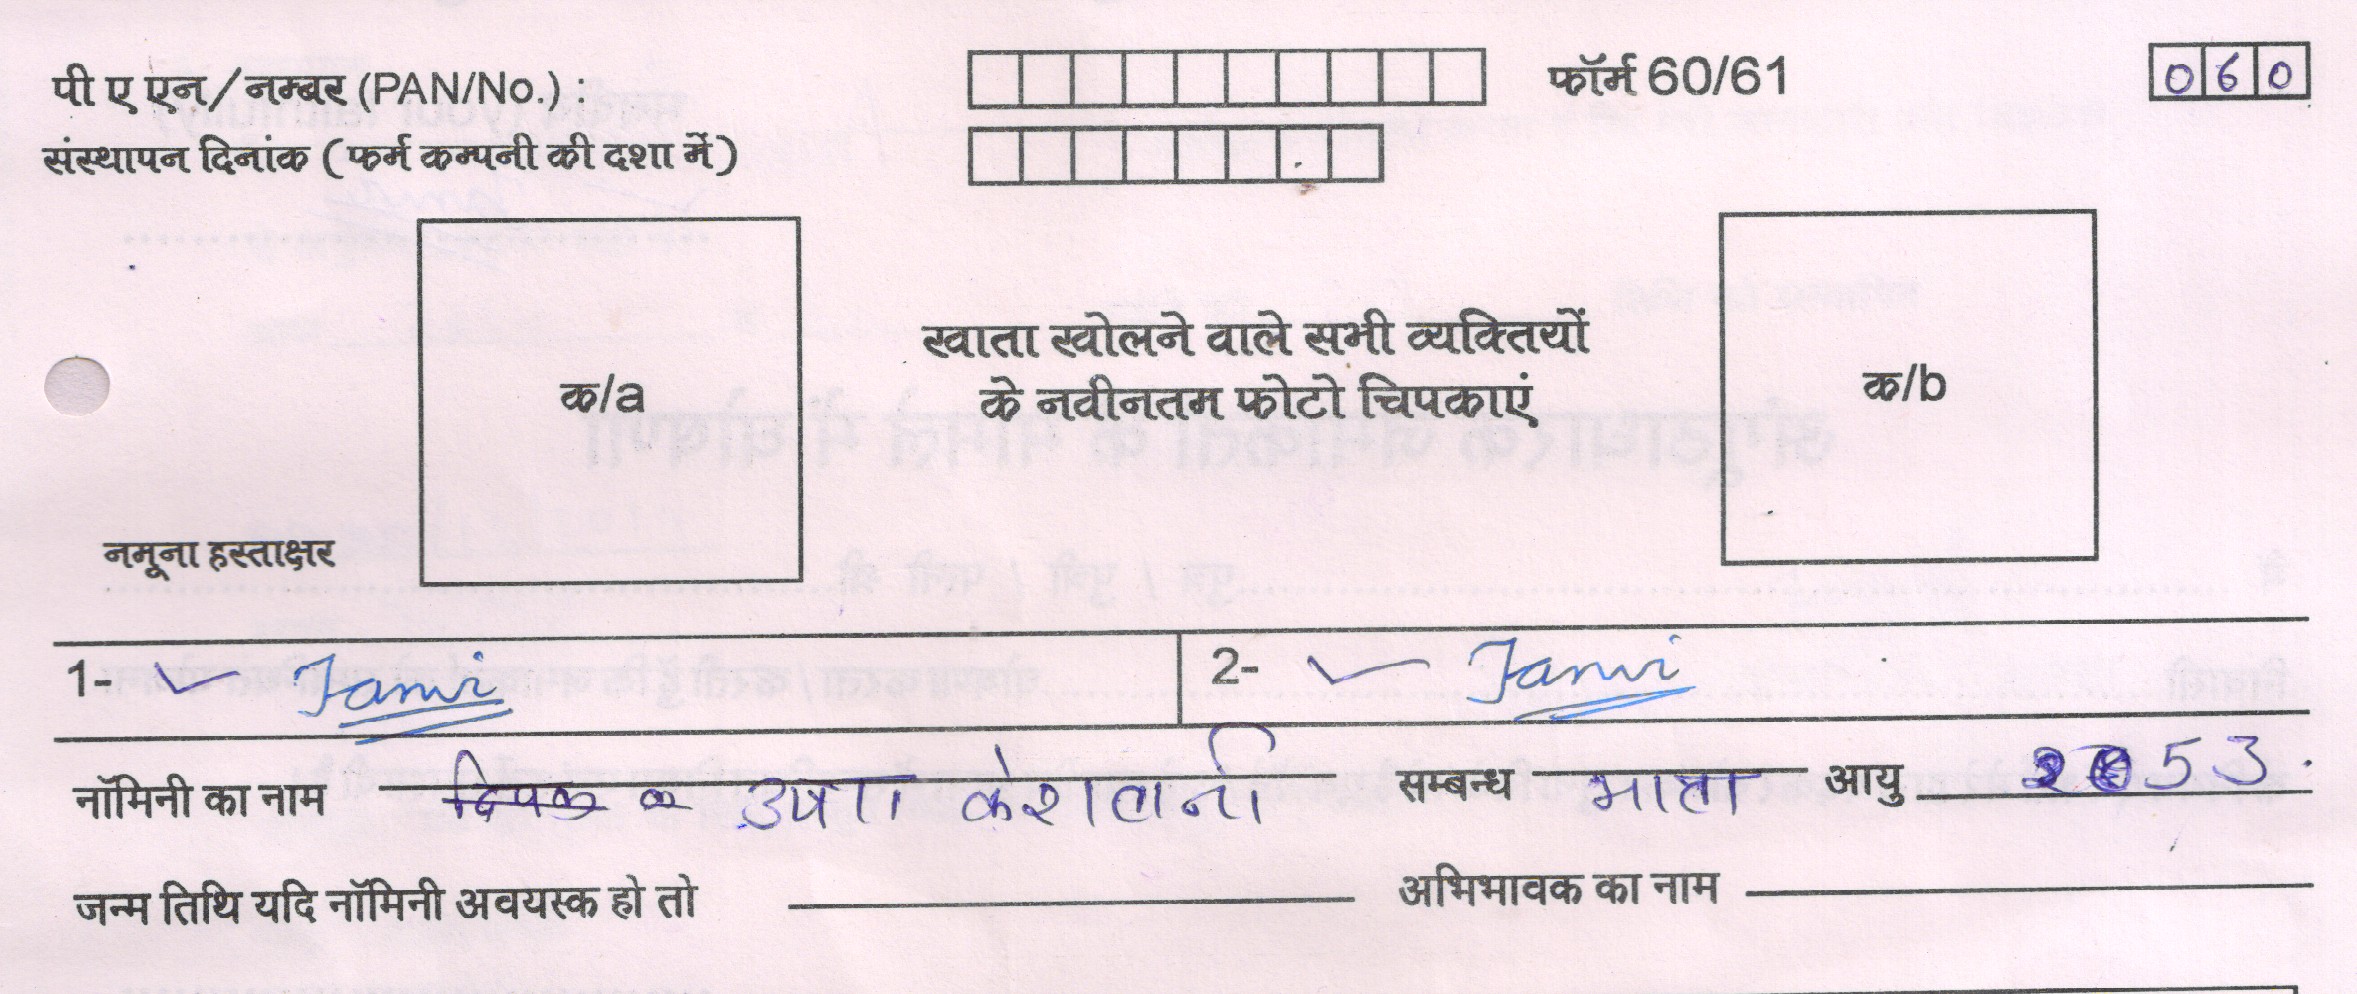 पी ए एन/नम्बर (PAN/No.) : फॉर्म 60/61 060
संस्थापन दिनांक (फर्म कम्पनी की दशा में)
क/a
खाता खोलने वाले सभी व्यक्तियों
के नवीनतम फोटो चिपकाएं
क/b
नमूना हस्ताक्षर
1- Tanvi 2- Tanvi
नॉमिनी का नाम उषा केशवानी सम्बन्ध माता आयु 53
जन्म तिथि यदि नॉमिनी अवयस्क हो तो अभिभावक का नाम